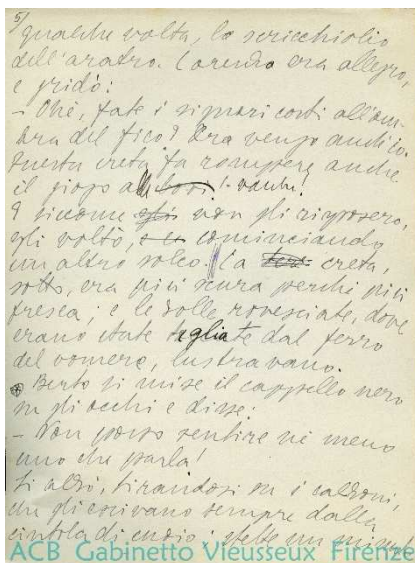 5/
qualche volta, lo scricchiolio
dell'aratro. Corendo era allegro,
e gridò:
- Ohé, fate i signori costì all'om-
bra del fico? Ora vengo anch'io.
Questa creta fa rompere anche
il giogo alle vacche!
E siccome non gli risposero,
egli voltò, cominciando
un altro solco. La creta,
sotto, era più scura perché più
fresca; e le zolle rovesciate, dove
erano state tagliate dal ferro
del vomere, lustravano.
Berto si mise il cappello nero
su gli occhi e disse:
- Non posso sentire né meno
uno che parla!
Si alzò, tirandosi su i calzoni,
che gli escivano sempre dalla
cintola di cuoio; stette un minuto
ACB Gabinetto Vieusseux Firenze